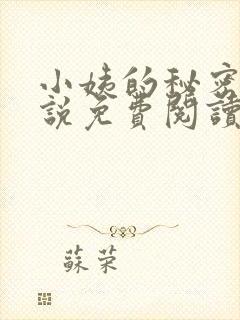 小姨的秘密
說免費閱讀
蘇荣